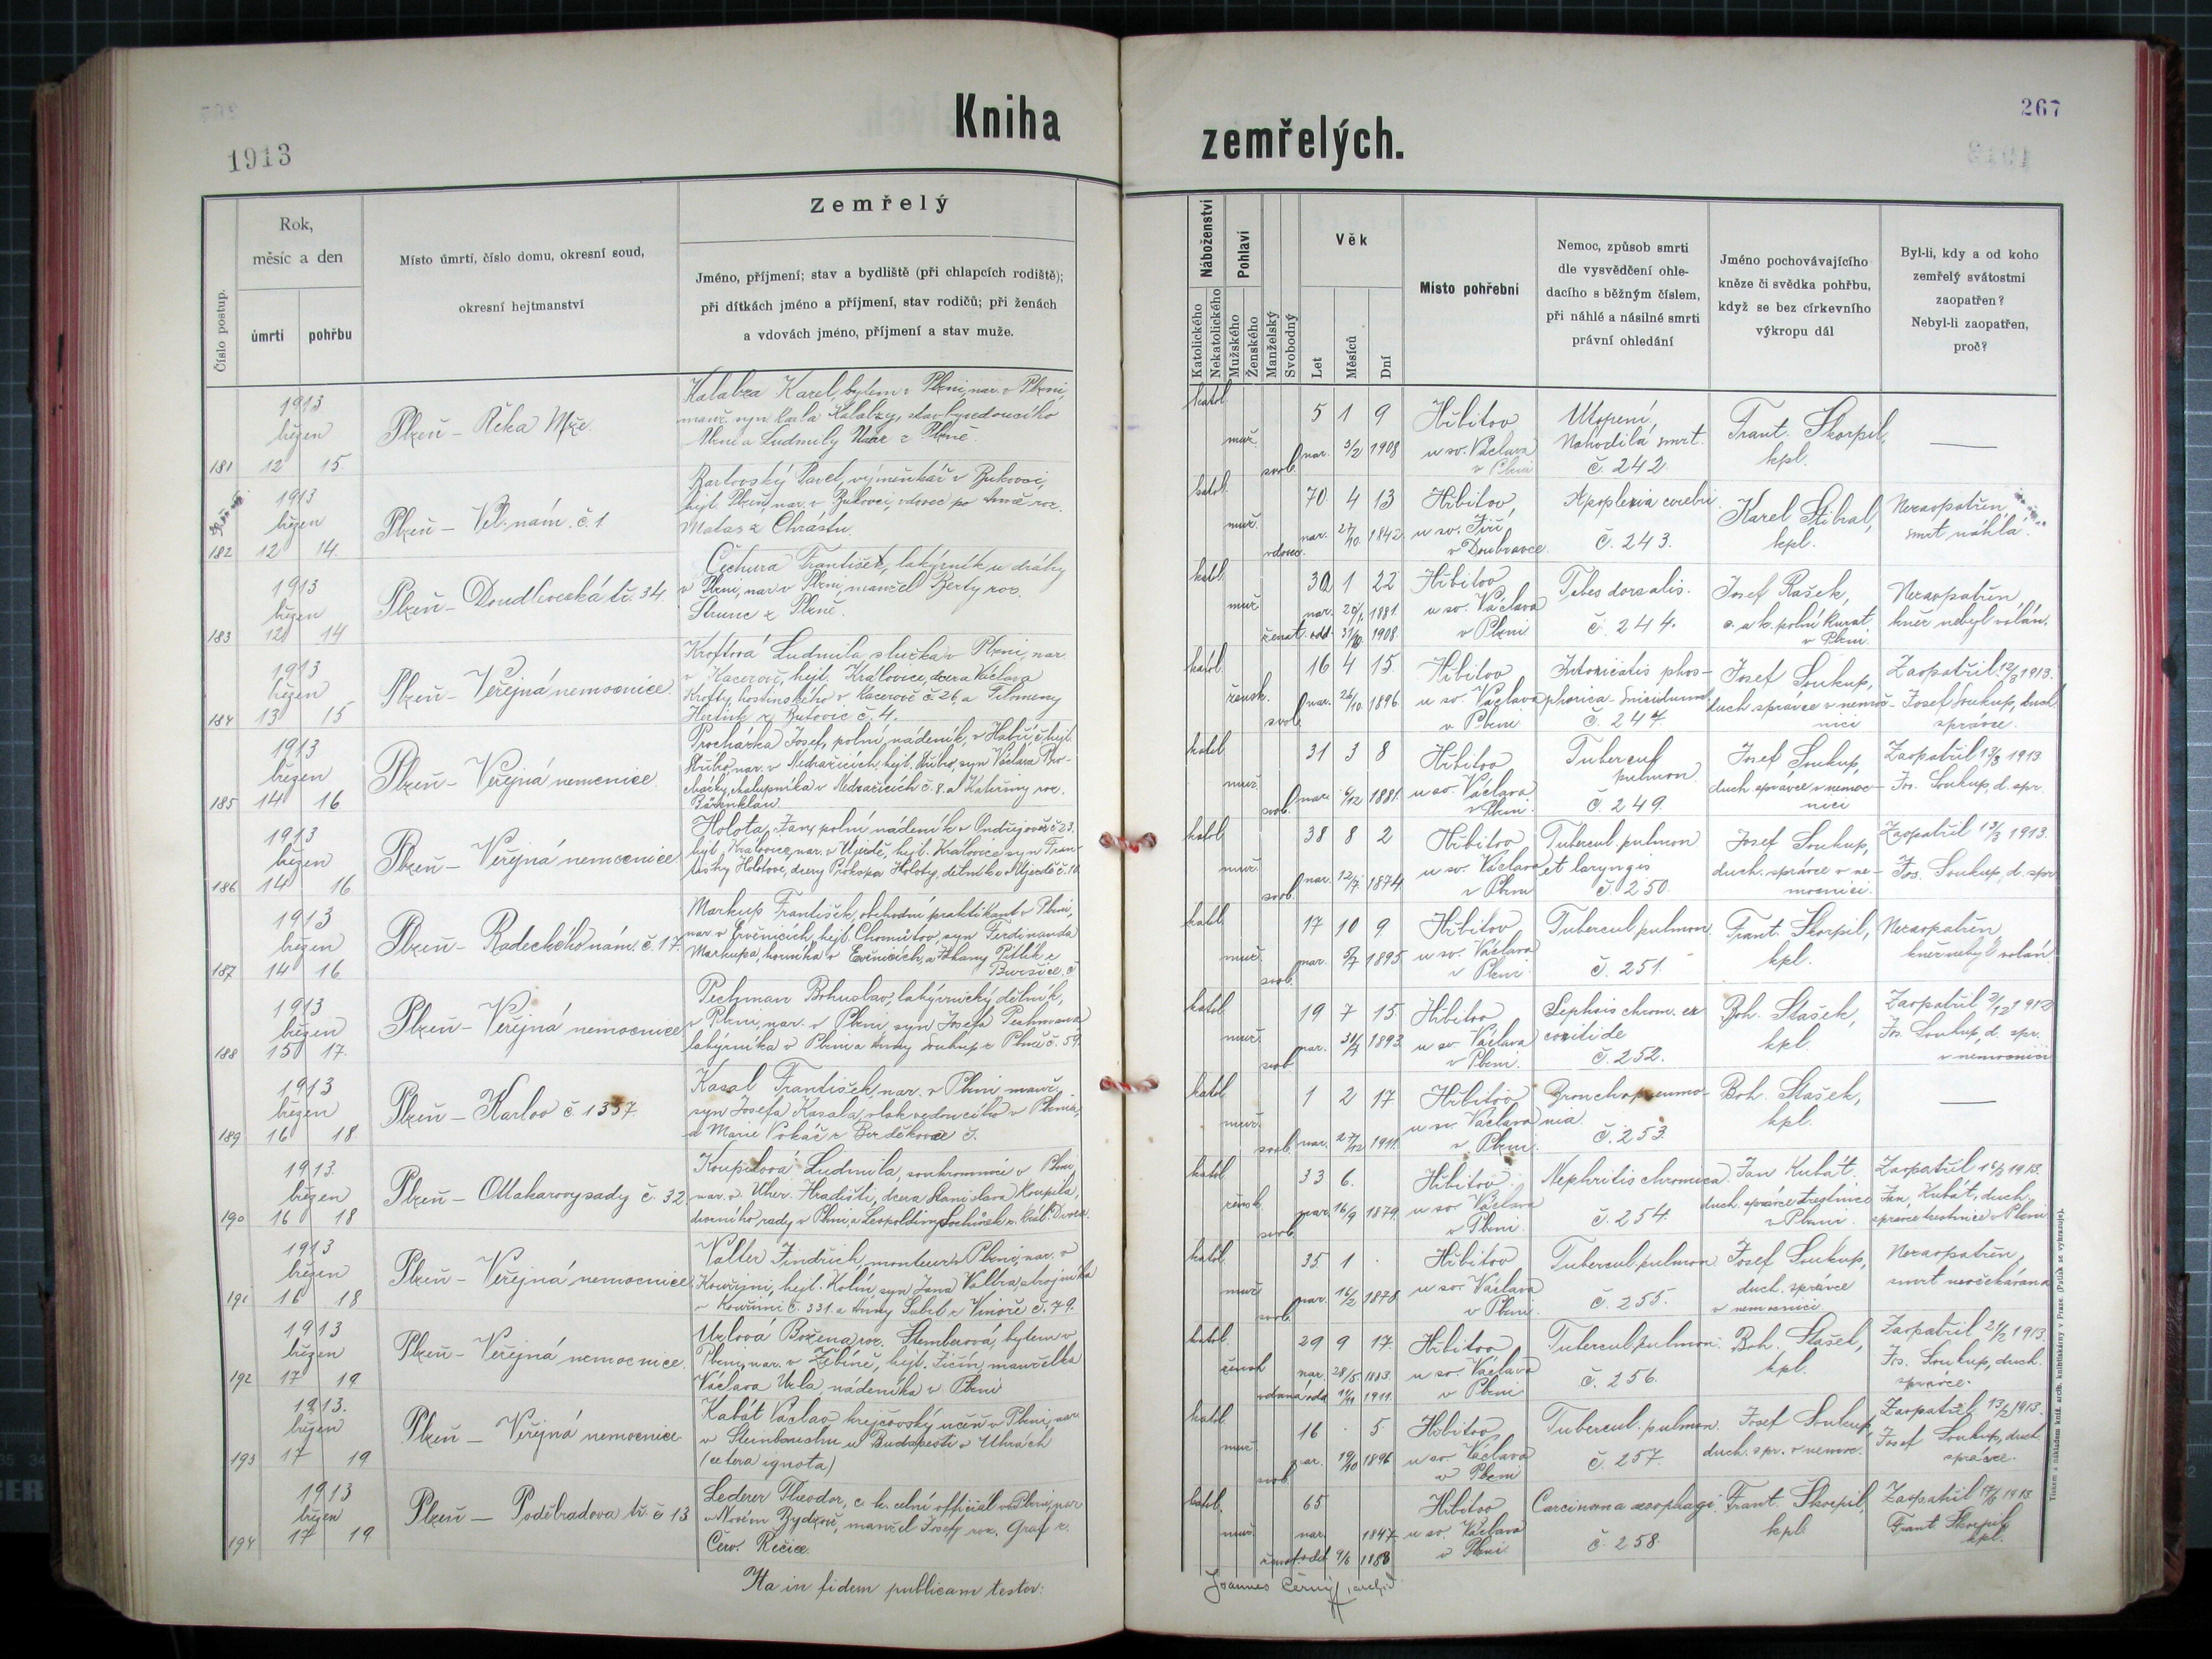 267
1913
Kniha
zemřelých.
Číslo postup.
Rok,
měsíc a den
úmrtí
pohřbu
Místo úmrtí, číslo domu, okresní soud,
okresní hejtmanství
Zemřelý
Jméno, příjmení; stav a bydliště (při chlapcích rodiště);
při dítkách jméno a příjmení, stav rodičů; při ženách
a vdovách jméno, příjmení a stav muže.
Náboženství
Katolického
Nekatolického
Pohlaví
Mužského
Ženského
Manželský
Svobodný
Věk
Let
Měsíců
Dní
Místo pohřební
Nemoc, způsob smrti
dle vysvědčení ohle-
dacího s běžným číslem,
při náhlé a násilné smrti
právní ohledání
Jméno pochovávajícího
kněze či svědka pohřbu,
když se bez církevního
výkropu dál
Byl-li, kdy a od koho
zemřelý svátostmi
zaopatřen?
Nebyl-li zaopatřen,
proč?
181
1913
březen
12 15.
Plzeň - Řeka Mže.
Kalabza Karel, bytem v Plzni, nar. v Plzni,
manž. syn Karla Kalabzy, stavbyvedoucího
a Ludmily z Plzně.
katol.
muž.
svob.
5 1 9
nar. 3/2 1908
Hřbitov
u sv. Václava
v Plzni
Utopení
Nahodilá smrt.
č. 242.
Frant. Škorpil,
kpl.
—
182
1913
březen
12 14.
Plzeň - Vel. nám. č. 1
Bartovský Pavel, výměnkář v Bukovci,
hejt. Plzeň, nar. v Bukovci, vdovec po Anně roz.
Matas z Chrástu.
katol.
muž.
vdovec.
70 4 13
nar. 27/10. 1842.
Hřbitov,
u sv. Jiří
v Doubravce.
Apoplexia cerebri
č. 243.
Karel Stibral,
kpl.
Nezaopatřen,
smrt náhlá.
183
1913
březen
12 14
Plzeň - Doudlevecká tř. 34.
Čechura František, lakýrník u dráhy
v Plzni, nar. v Plzni, manžel Berty roz.
Štrunc z Plzně.
katol.
muž.
ženat.
1 22
nar. 1881.
odd. 1908.
Hřbitov
u sv. Václava
v Plzni
Tabes dorsalis.
č. 244.
Josef Rašek,
c. a k. polní kurat
v Plzni.
Nezaopatřen
kněz nebyl volán.
184
1913
březen
13 15
Plzeň - Veřejná nemocnice.
Kroftová Ludmila služka v Plzni, nar.
v Kacerově, hejt. Kralovice, dcera Václava
Krofty, hostinského v Kacerově č. 26, a Filomeny
z Butovic č. 4.
katol.
žensk.
svob.
16 4 15.
nar. 26/10. 1896.
Hřbitov
u sv. Václava
v Plzni
Intoxicatis phos-
phorica - Suicidium
č. 247
Josef Soukup,
duch. správce v nemoc-
nici
Zaopatřil 12/3 1913.
Josef Soukup, duch.
správce.
185
1913
březen
14 16
Plzeň - Veřejná nemocnice.
Procházka Josef, polní nádeník, v
Stříbro, nar. v Nedražicích, hejt. Stříbro, syn Václava Pro-
cházky, chalupníka v Nedražicích č. 8. a Kateřiny roz.
katol.
muž.
svob.
31 3 8
nar. 6/12 1881.
Hřbitov
u sv. Václava
v Plzni.
Tubercul
pulmon.
č. 249.
Josef Soukup,
duch. správce v nemoc-
nici
Zaopatřil 13/3 1913
Jos. Soukup, d. spr.
186
1913
březen
14 16
Plzeň - Veřejná nemocnice.
Holota Jan, polní nádeník v Ondřejově č. 23.
hejt. Kralovice, nar. v Újezdě, hejt. Kralovice syn Fran-
tišky Holotové, dcery Prokopa Holoty, dělníka v Újezdě č. 10.
katol.
muž.
svob.
38 8 2
nar. 12/7 1874.
Hřbitov
u sv. Václava
v Plzni
Tubercul. pulmon
et laryngis
č. 250.
Josef Soukup,
duch. správce v ne-
mocnici.
Zaopatřil 13/3 1913.
Jos. Soukup, d. spr.
187
1913
březen
14 16
Plzeň - Radeckého nám. č. 17.
Markup František, obchodní praktikant v Plzni,
nar. v Ervěnicích, hejt. Chomutov, syn Ferdinanda
Markupa, horníka v Ervěnicích, a Johany Pitlík z
č.
katol.
muž.
svob.
17 10 9
nar. 5/7 1895.
Hřbitov
u sv. Václava
v Plzni.
Tubercul. pulmon
č. 251.
Frant. Škorpil,
kpl.
Nezaopatřen,
kněz nebyl volán.
188
1913
březen
15 17.
Plzeň - Veřejná nemocnice
Pechman Bohuslav, lakýrnický dělník,
v Plzni, nar. v Plzni, syn Josefa Pechmana
lakýrníka v Plzni a Anny Soukup z Plzně č. 59.
katol.
muž.
svob.
19 7 15
nar. 31/7 1893.
Hřbitov
u sv. Václava
v Plzni.
Sephsis chron. ex
coxitide
č. 252.
Boh. Stašek,
kpl.
Zaopatřil
Jos. Soukup, d. spr.
v nemocnici
189
1913
březen
16 18.
Plzeň - Karlov č. 1357.
Kasal František, nar. v Plzni manž.
syn Josefa Kasala vlakvedoucího v Plzni,
a Marie Vokáč z č.
katol.
muž.
svob.
1 2 17.
nar. 27/12 1911.
Hřbitov
u sv. Václava
v Plzni.
Bronchopneumo-
nia.
č. 253.
Boh. Stašek,
kpl.
—
190
1913.
březen
16 18
Plzeň - Ottakarovy sady č. 32
Koupilová Ludmila, soukromnice v Plzni,
nar. v Uher. Hradišti, dcera Stanislava Koupila,
dvorního rady v Plzni, a Leopoldiny z Král. Dvora.
katol.
žensk.
svob.
33 6.
nar. 16/9 1879.
Hřbitov
u sv. Václava
v Plzni.
Nephritis chronica.
č. 254.
Jan Kubát.
duch. správce trestnice
v Plzni.
Zaopatřil 15/3 1913.
Jan Kubát, duch.
správce trestnice v Plzni
191
1913
březen
16 18
Plzeň - Veřejná nemocnice
Valter Jindřich, monteur v Plzni, nar. v
Kouřimi, hejt. Kolín, syn Jana Valtra, strojníka
v Kouřimi č. 331. a Anny z Vinoře č. 79.
katol.
muž.
svob.
35 1 .
nar. 16/2 1878.
Hřbitov
u sv. Václava
v Plzni
Tubercul. pulmon.
č. 255.
Josef Soukup,
duch. správce
v nemocnici
Nezaopatřen,
smrt neočekávaná
192
1913
březen
17 19
Plzeň - Veřejná nemocnice.
Uzlová Božena, roz. Štemberová, bytem v
Plzni, nar. v Žebíně, hejt. Jičín, manželka
Václava Uzla, nádeníka v Plzni
katol.
žensk
vdaná
29 9 17.
nar. 28/5 1883.
odd. 1911.
Hřbitov
u sv. Václava
v Plzni
Tubercul. pulmon.
č. 256.
Boh. Stašek,
kpl.
Zaopatřil 21/2 1913.
Jos. Soukup, duch.
správce.
193
1913.
březen
17 19
Plzeň - Veřejná nemocnice
Kabát Václav, krejčovský učeň v Plzni, nar.
v Steinbruchu u Budapešti v Uhrách
(cetera ignota)
katol.
muž.
svob.
16 . 5
nar. 1896
Hřbitov,
u sv. Václava
v Plzni
Tubercul. pulmon.
č. 257.
Josef Soukup,
duch. spr. v nemoc.
Zaopatřil 13/2 1913.
Josef Soukup, duch.
správce.
194
1913
březen
17 19
Plzeň - Poděbradova tř. č. 13
Lederer Theodor, c. k. celní official v Plzni, nar.
v Novém Bydžově, manžel Josefy roz. Graf z
Červ. Řečice.
katol.
muž.
ženat.
65
nar. 1847
odd. 9/6 1888
Hřbitov
u sv. Václava
v Plzni
Carcinoma oesophagi.
č. 258.
Frant. Škorpil,
kpl.
Zaopatřil 1913
Frant. Škorpil,
kpl.
Ita in fidem publicam testor:
Joannes Černý, archid.
Tiskem a nákladem kníž. arcib. knihtiskárny v Praze. (Patisk se vyhrazuje).